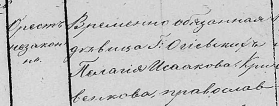 Орестъ
незакон
но.
Временно обязанная
дѣвица Г. Опевскихъ
Пелагія Исаакова Кри
венкова, православ